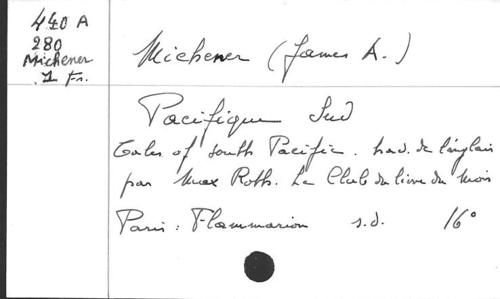 440 A
280
Michener
.1 Fr.
Michener (James A.)
Pacifique Sud
Tales of South Pacific. trad. de l'anglais
par Max Roth. Le Club du livre du mois
Paris : Flammarion s.d. 16°